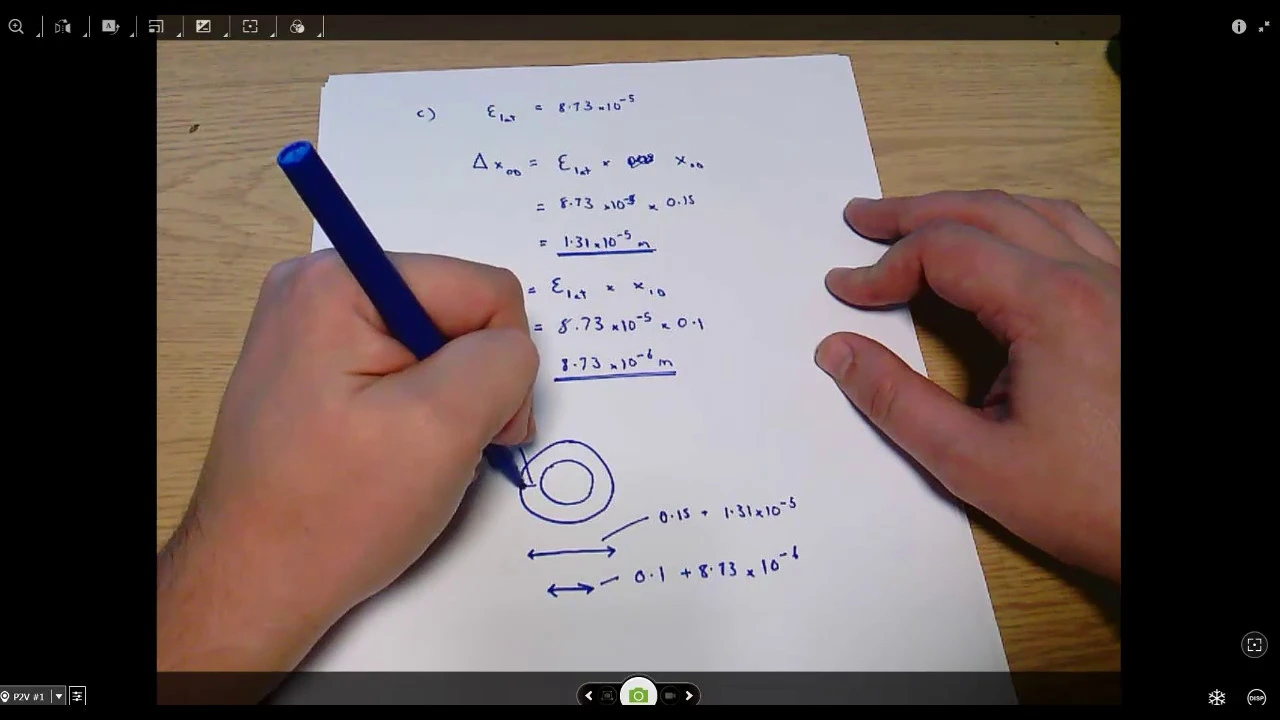 c) ε lat = 8.73 × 10⁻⁵
Δx OD = ε lat × x OD
= 8.73 × 10⁻⁵ × 0.15
= 1.31 × 10⁻⁵ m
= ε lat × x ID
= 8.73 × 10⁻⁵ × 0.1
8.73 × 10⁻⁶ m
0.15 + 1.31 × 10⁻⁵
0.1 + 8.73 × 10⁻⁶
P2V #1
DISP